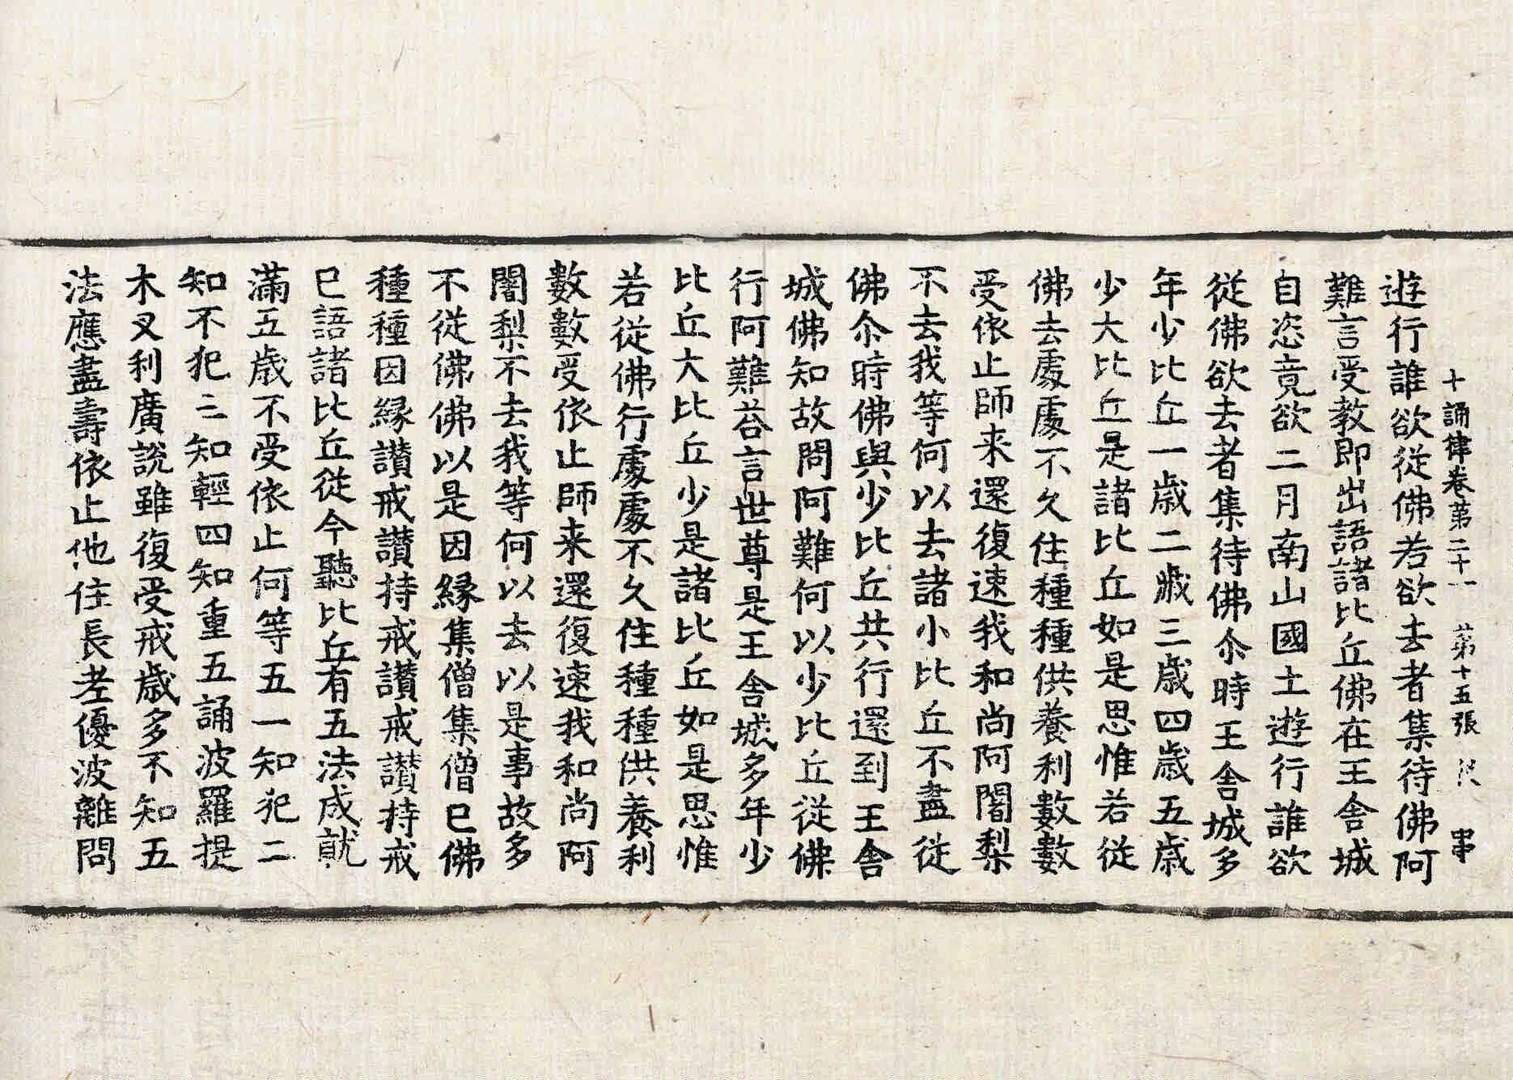 十誦律卷第二十一 第十五張 串
遊行誰欲從佛若欲去者集待佛阿
難言受教即出語諸比丘佛在王舍城
自恣竟欲二月南山國土遊行誰欲
從佛欲去者集待佛尒時王舍城多
年少比丘一歲二歲三歲四歲五歲
少大比丘是諸比丘如是思惟若從
佛去處處不久住種種供養利數數
受依止師来還復速我和尚阿闍梨
不去我等何以去諸小比丘不盡從
佛尒時佛與少比丘共行還到王舍
城佛知故問阿難何以少比丘從佛
行阿難荅言世尊是王舍城多年少
比丘大比丘少是諸比丘如是思惟
若從佛行處處不久住種種供養利
數數受依止師来還復速我和尚阿
闍梨不去我等何以去以是事故多
不從佛佛以是因緣集僧集僧已佛
種種因緣讃戒讃持戒讃戒讃持戒
已語諸比丘從今聽比丘有五法成就
滿五歲不受依止何等五一知犯二
知不犯三知輕四知重五誦波羅提
木叉利廣說雖復受戒歲多不知五
法應盡壽依止他住長老優波離問